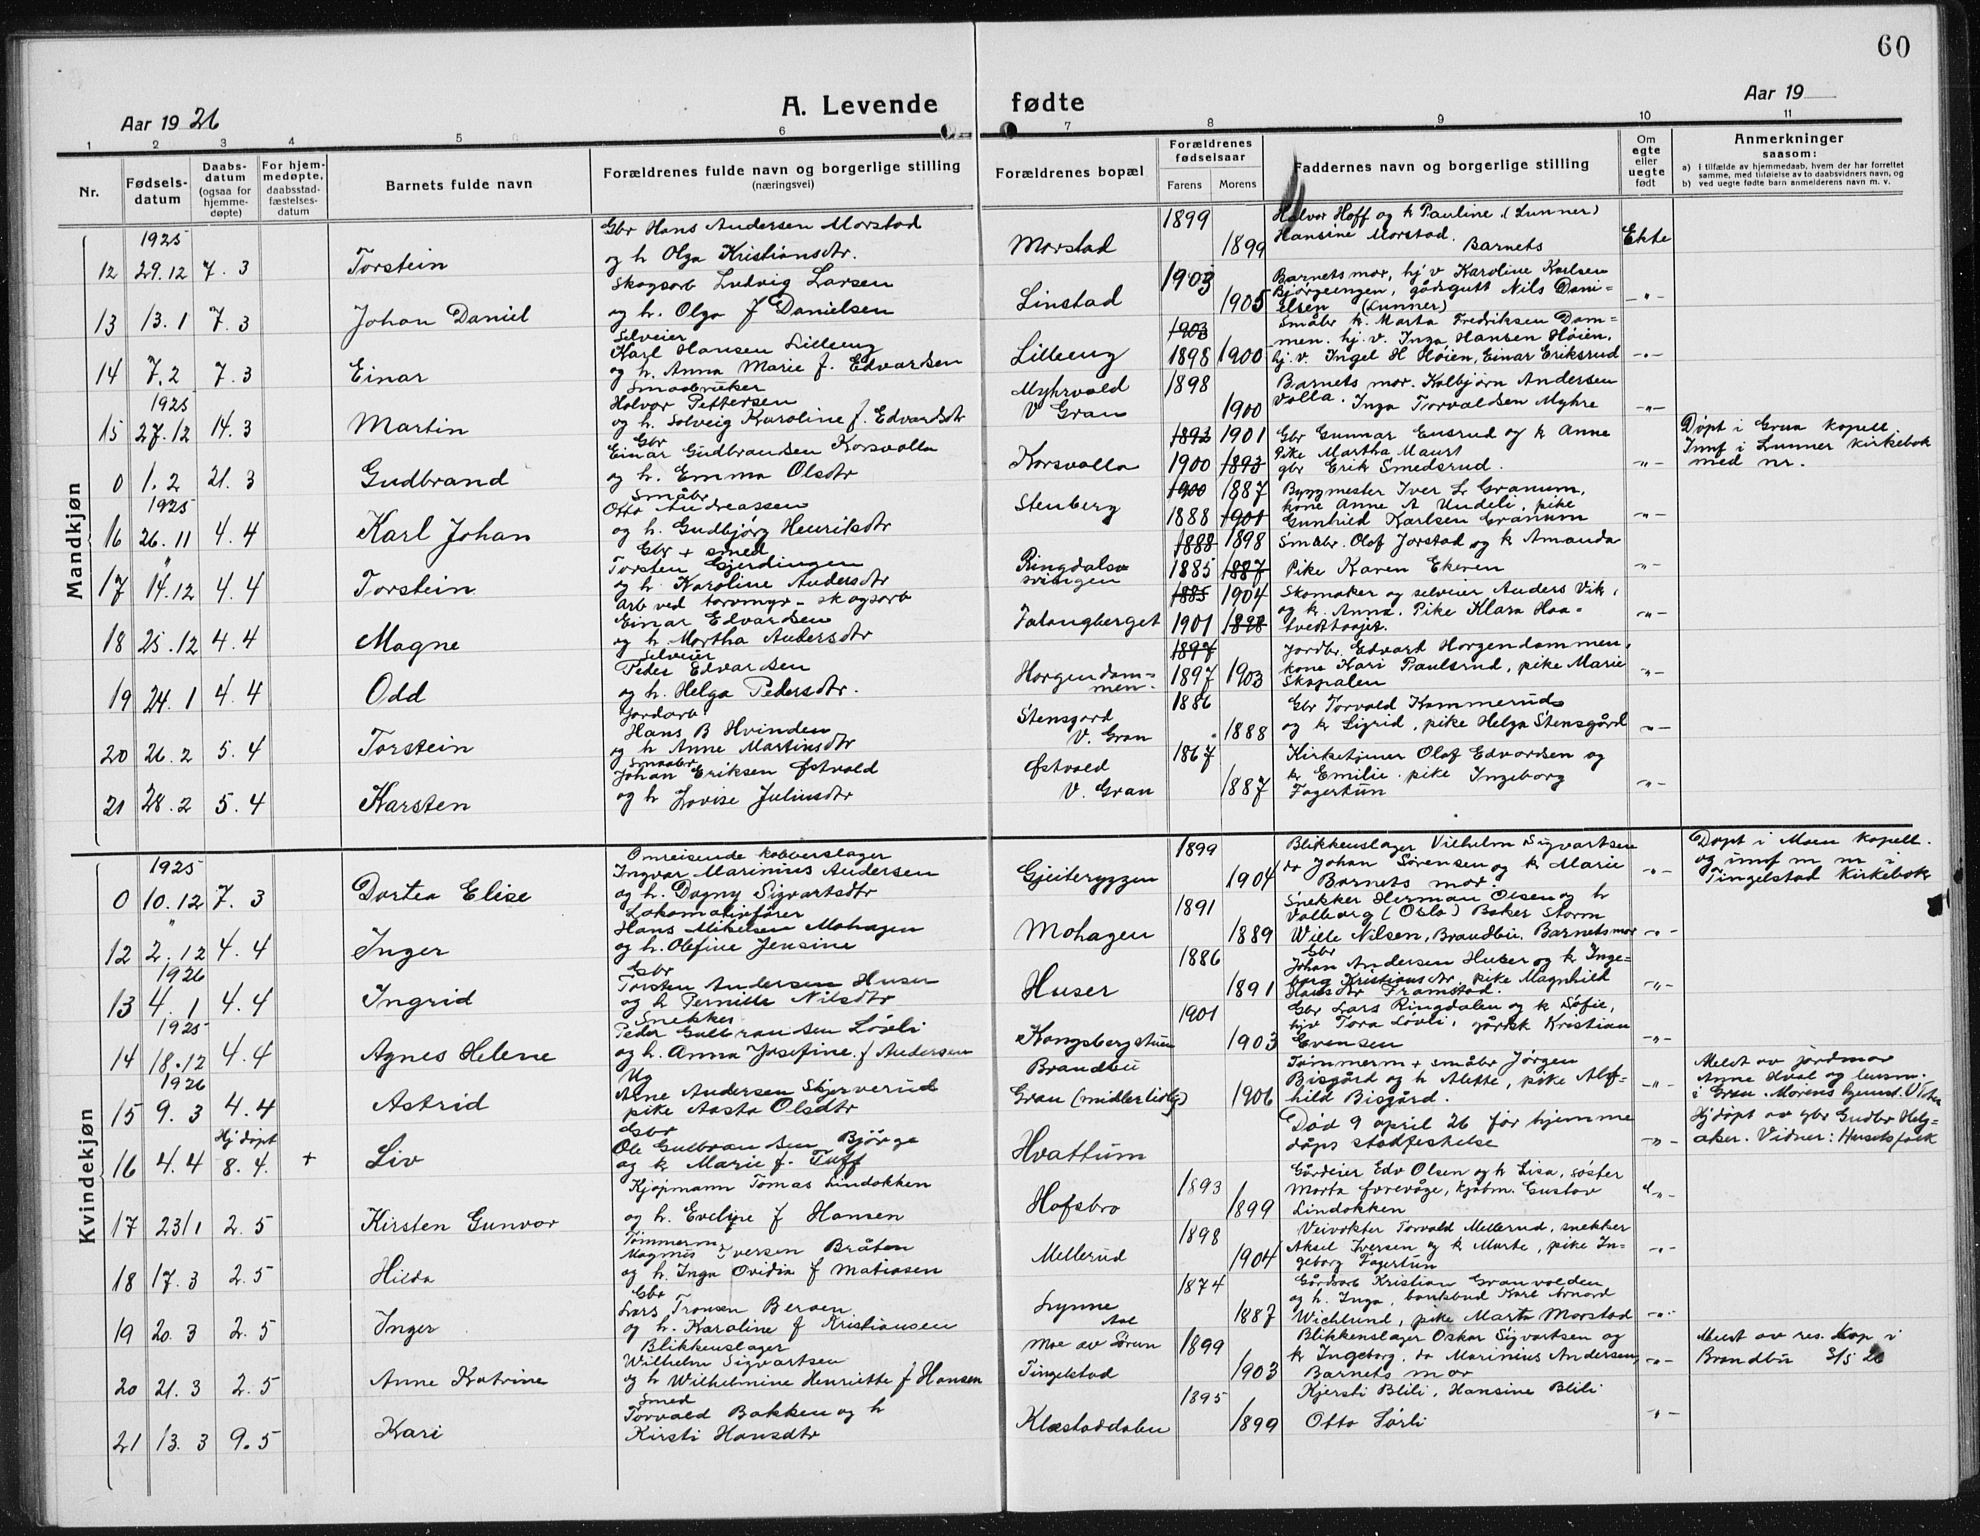 60
Aar 1926
A. Levende fødte
Aar 19
1 2 3 4 5 6 7 8 9 10 11
Nr.
Fødsels-
datum
Daabs-
datum
(ogsaa for
hjemme-
døpte)
For hjem-
medøpte,
daabsstad-
fæstelses-
datum
Barnets fulde navn
Forældrenes fulde navn og borgerlige stilling
(næringsvei)
Forældrenes bopæl
Forældrenes
fødselsaar
Farens Morens
Faddernes navn og borgerlige stilling
Om
egte
eller
uegte
født
Anmerkninger
saasom:
a) i tilfælde av hjemmedaab, hvem der har forrettet
samme, med tilføielse av to daabsvidners navn, og
b) ved uegte fødte barn anmelderens navn m. v.
Mandkjøn
1925
12 29.12 7.3 Torstein
Gbr Hans Andersen Morstad
og h. Olga Kristiansdtr.
Morstad
1899
1899
Halvor Hoff og k Pauline (Lunner)
Hansine Morstad. Barnets
Ekte
13 13.1 7.3 Johan Daniel
Skogsarb Ludvig Larsen
og h. Olga f Danielsen
Linstad
1903
1905
Barnets mor, hj v Karoline Karlsen
Bjørgeengen, gårdsgutt Nils Dani-
elsen (Lunner)
-"-
14 7.2 7.3 Einar
Selveier
Karl Hansen Lilleeng
og h. Anna Marie f. Edvardsen
Lilleeng
1903
1898 1900
Småbr k. Marta Fredriksen Dam-
men. hj. v. Inga Hansen Høien,
hj. v. Ingel H Høien, Einar Eriksrud
-"-
1925
15 27.12 14.3 Martin
Smaabruker
Halvor Pettersen
og h. Solveig Karoline f. Edvardsdtr
Myhrvold
V Gran
1898
1900
Barnets mor. Kolbjørn Andersen
Volla. Inga Torvaldsen Myhre
-"-
0 1.2 21.3 Gudbrand
Gbr
Einar Gudbrandsen Korsvolla
og h. Emma Olsdtr
Korsvolla
1893 1901
1900 1893
Gbr Gunnar Eusrud og k Anne
Pike Martha Maurt
gbr Erik Smedsrud.
-"-
Døpt i Grua kapell.
Innf i Lunner kirkebok
med nr.
1925
16 26.11 4.4 Karl Johan
Småbr
Otto Andreassen
og h. Gudbjørg Henriksdtr
Stenberg
1900 1887
1888 1901
Byggmester Iver L Granum,
kone Anne A Undeli, pike
Gunhild Karlsen Granum
-"-
"
17 14.12 4.4 Torstein
Gbr + smed
Torsten Gjerdingen
og h. Karoline Andersdtr
Ringdals-
svingen
1888 1898
1885 1887
Småbr. Olof Jorstad og k Amanda
Pike Karen Ekeren
-"-
18 25.12 4.4 Magne
Arb ved torvmyr - skogsarb
Einar Edvardsen
og h. Martha Andersdtr
Jatangberget
1885 1904
1901 1898
Skomaker og selveier Anders Vik,
og k. Anna. Pike Klara Haa-
-"-
19 24.1 4.4 Odd
Selveier
Peder Edvardsen
og h. Helga Pedersdtr.
Horgendam-
men.
1897
1897 1903
Jordbr. Edvard Horgendammen,
kone Kari Paulsrud, pike Marie
Skapalen
-"-
20 26.2 5.4 Torstein
Jordarb
Hans B Hvinden
og h Anne Martinsdtr
Stensgard
V. Gran
1886
1888
Gbr Torvald Kammerud
og k Sigrid, pike Helga Stensgård
-"-
21 28.2 5.4 Karsten
Smaabr
Johan Eriksen Østvold
og h Lovise Juliusdtr
Østvold
V. Gran
1867
1887
Kirketjener Olaf Edvardsen og
k Emilie. pike Ingeborg
Fagertun
-"-
Kvindekjøn
1925
0 10.12 7.3 Dortea Elise
Omreisende kobberslager
Ingvar Marinius Andersen
og h. Dagny Sigvartsdtr
Gjeiteryggen
1899
1904
Blikkenslager Vilhelm Sigvartsen
do Johan Sørensen og k Marie
Barnets mor.
-"-
Døpt i Moen kapell.
og innf m nr i
Tingelstad Kirkebok
"
12 2.12 4.4 Inger
Lokomotivfører
Hans Mikelsen Mohagen
og h. Olefine Jensine
Mohagen
1891
1889
Snekker Herman Olsen og h
Valborg (Oslo) Baker Storm
Wille Nilsen, Brandbu. Barnets mor
-"-
1926
13 4.1 4.4 Ingrid
Gbr
Torsten Andersen Huser
og h Pernille Nilsdtr
Huser
1886
1891
Gbr
Johan Andersen Huser og k Inge-
borg Kristiansdtr, pike Magnhild
Hansdtr Framstad.
-"-
1925
14 18.12 4.4 Agnes Helene
Snekker
Peder Gulbrandsen Løvli
og h. Anna Josefine f Andersen
Kongsbergstuen
Brandbu
1901
1903
Gbr Lars Ringdalen og k Sofie,
hjv Tora Løvli, gårdsk Kristian
Evensen
-"-
1926
15 9.3 4.4 Astrid
Ug
Arne Andersen Skjerverud
pike Aasta Olsdtr
Gran (midlertidig)
1906
Tømmerm + småbr Jørgen
Bisgård og h Alette, pike Alf-
hild Bisgård.
-"-
Meldt av jordmor
Anne Hval og lensm.
i Gran. Morens hjemst. V Toten
16 4.4 Hj døpt 8.4. + Liv
Gbr
Ole Gulbrandsen Bjørge
og k Marie f. Tuff
Hvattum
Død 9 april 26 før hjemme
dåps stadfestelse
-"-
Hj døpt av gbr Gudbr Helg-
aker. Vidner: Husets folk
17 23/1 2.5 Kirsten Gunvor
Kjøpmann Tomas Lindokken
og h. Eveline f Hansen
Hofsbro
1893
1899
Gårdeier Edv Olsen og k Lisa, søster
Marta Forevåge, kjøbm. Gustav
Lindokken
-"-
18 17.3 2.5 Hilda
Tømmerm
Magnus Iversen Bråten
og h. Inga Ovidia f Matiasen
Mellerud
1898
1904
Veivokter Torvald Mellerud, snekker
Aksel Iversen og k Marte, pike In-
geborg Fagertun
-"-
19 20.3 2.5 Inger
Gbr
Lars Tronsen Beroen
og h. Karoline f Kristiansen
Lynne
1874
1887
Gårdarb Kristian Granvolden
og h. Inga, bankbud Karl Arnord
Wichlund, pike Marta Morstad
-"-
20 21.3 2.5 Anne Katrine
Blikkenslager
Wilhelm Sigvartsen
og h Wilhelmine Henriette f Hansen
Moe av Sørum
Tingelstad
1899
1903
Blikkenslager Oskar Sigvartsen og
k Ingeborg, do Marinius Andersen,
Barnets mor
-"-
Meldt av res. kap i
Brandbu 3/5 26
21 13.3 9.5 Kari
Smed
Torvald Bakken og h
Kirsti Hansdtr
Klæstaddalen
1895
1899
Kjersti Blili, Hansine Blili
Otto Sørli
-"-